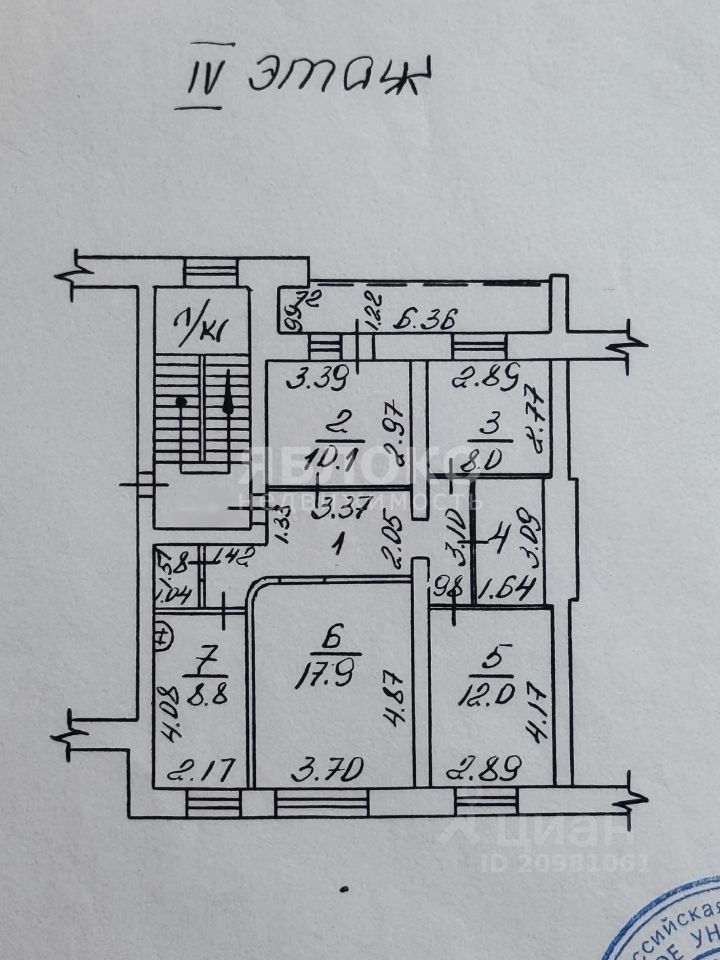 IV этаж
л/кл
.72
.99
1.22
6.36
3.39
2.89
2
10.1
2.97
3
8.0
2.77
ЯБЛОКО
недвижимость
1.33
3.37
1
2.05
3.10
4
3.09
1.57
8
1.42
1.04
.98
1.64
7
8.8
6
17.9
5
12.0
4.08
4.87
4.17
2.17
3.70
2.89
циан
ID 20981061